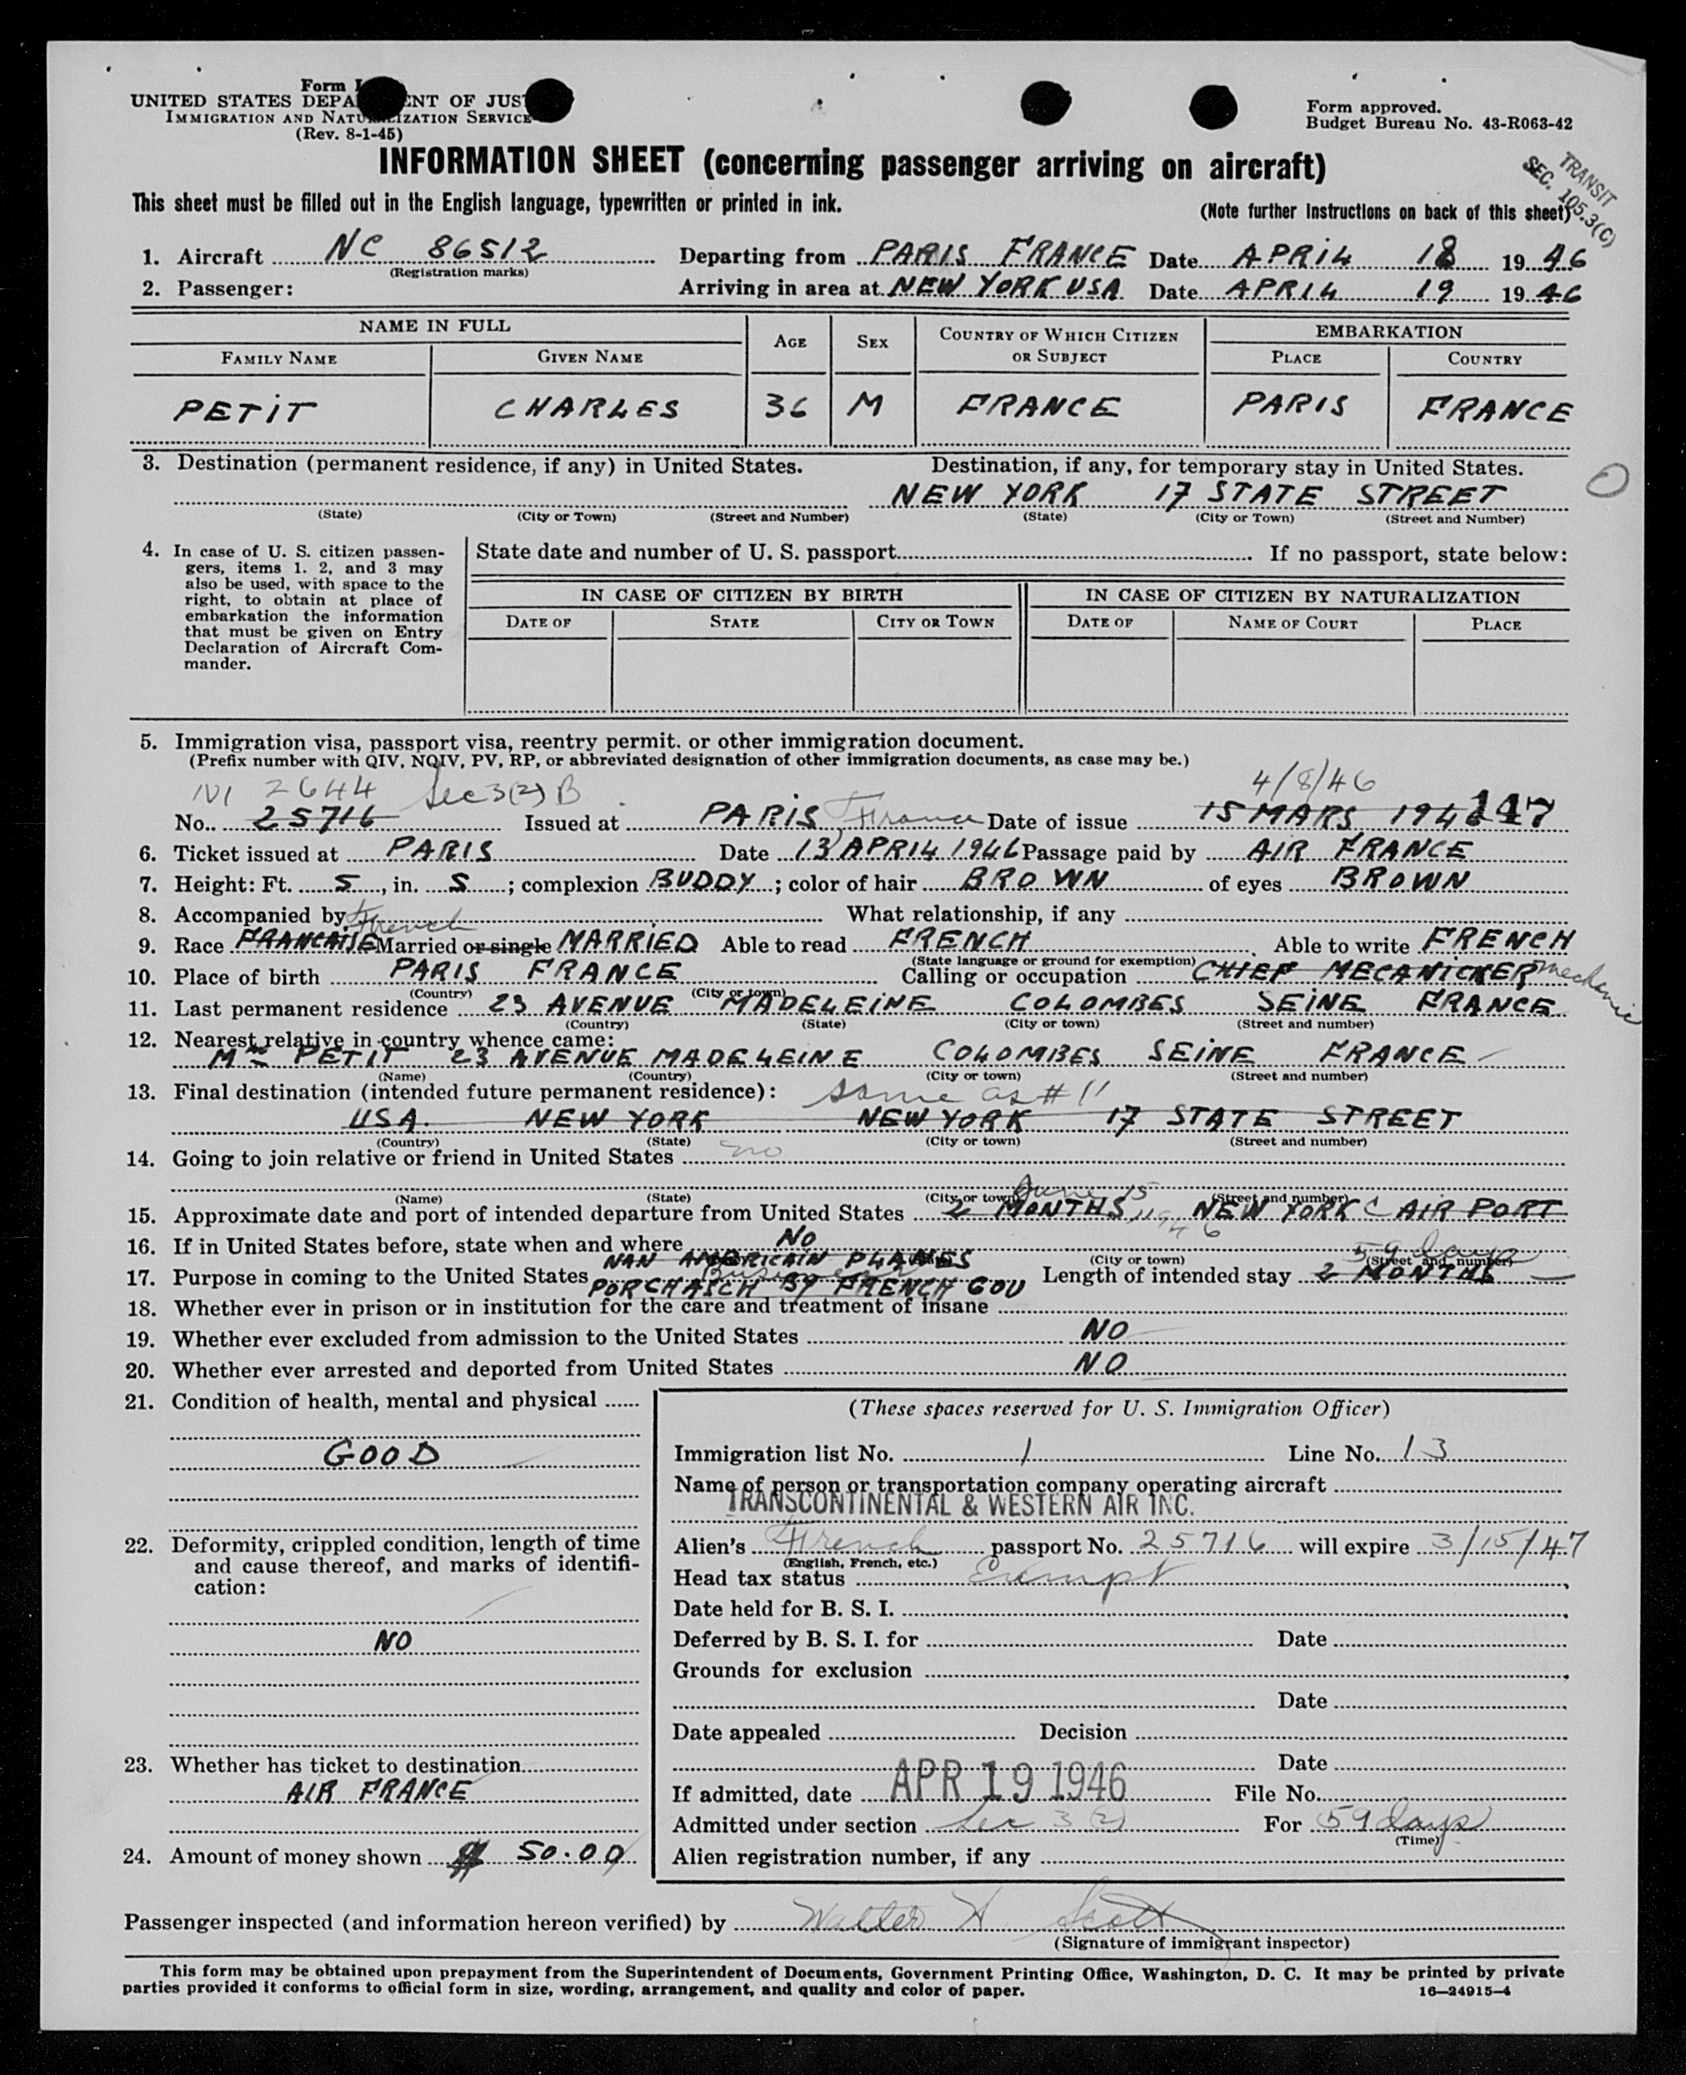 Form I
UNITED STATES DEPA ENT OF JUS
IMMIGRATION AND NATU IZATION SERVICE
(Rev. 8-1-45)
Form approved.
Budget Bureau No. 43-R063-42
INFORMATION SHEET (concerning passenger arriving on aircraft)
TRANSIT
SEC. 105.3(C)
This sheet must be filled out in the English language, typewritten or printed in ink.
(Note further instructions on back of this sheet)
1. Aircraft NC 86512 Departing from PARIS FRANCE Date APRIL 18 1946
(Registration marks)
2. Passenger: Arriving in area at NEW YORK USA Date APRIL 19 1946
NAME IN FULL AGE SEX COUNTRY OF WHICH CITIZEN OR SUBJECT EMBARKATION
FAMILY NAME GIVEN NAME PLACE COUNTRY
PETIT CHARLES 36 M FRANCE PARIS FRANCE
3. Destination (permanent residence, if any) in United States. Destination, if any, for temporary stay in United States.
NEW YORK 17 STATE STREET
(State) (City or Town) (Street and Number) (State) (City or Town) (Street and Number)
4. In case of U. S. citizen passen-
gers, items 1. 2, and 3 may
also be used, with space to the
right, to obtain at place of
embarkation the information
that must be given on Entry
Declaration of Aircraft Com-
mander.
State date and number of U. S. passport If no passport, state below:
IN CASE OF CITIZEN BY BIRTH IN CASE OF CITIZEN BY NATURALIZATION
DATE OF STATE CITY OR TOWN DATE OF NAME OF COURT PLACE
5. Immigration visa, passport visa, reentry permit. or other immigration document.
(Prefix number with QIV, NQIV, PV, RP, or abbreviated designation of other immigration documents, as case may be.)
2644 Sec 3(2) B 4/8/46
No. 25716 Issued at PARIS, France Date of issue 15 MARS 1946 147
6. Ticket issued at PARIS Date 13 APRIL 1946 Passage paid by AIR FRANCE
7. Height: Ft. 5, in. 5; complexion BUDDY; color of hair BROWN of eyes BROWN
8. Accompanied by What relationship, if any
French
9. Race FRANCAISE Married or single MARRIED Able to read FRENCH Able to write FRENCH
(State language or ground for exemption)
10. Place of birth PARIS FRANCE Calling or occupation CHIEF MECANICKER mechanic
(Country) (City or town)
11. Last permanent residence 23 AVENUE MADELEINE COLOMBES SEINE FRANCE
(Country) (State) (City or town) (Street and number)
12. Nearest relative in country whence came:
Mme PETIT 23 AVENUE MADELEINE COLOMBES SEINE FRANCE
(Name) (Country) (City or town) (Street and number)
13. Final destination (intended future permanent residence): same as #11
USA. NEW YORK NEW YORK 17 STATE STREET
(Country) (State) (City or town) (Street and number)
14. Going to join relative or friend in United States no
(Name) (State) (City or town) (Street and number)
June 15 1946
15. Approximate date and port of intended departure from United States 2 MONTHS NEW YORK C AIR PORT
16. If in United States before, state when and where NO
(City or town) (Street and number)
NAN AMERICAIN PLANES 59 days
17. Purpose in coming to the United States Business Length of intended stay 2 MONTHS
PORCHAISH BY FRENCH GOU
18. Whether ever in prison or in institution for the care and treatment of insane
19. Whether ever excluded from admission to the United States NO
20. Whether ever arrested and deported from United States NO
21. Condition of health, mental and physical
GOOD
22. Deformity, crippled condition, length of time
and cause thereof, and marks of identifi-
cation:
NO
23. Whether has ticket to destination
AIR FRANCE
24. Amount of money shown $ 50.00
(These spaces reserved for U. S. Immigration Officer)
Immigration list No. 1 Line No. 13
Name of person or transportation company operating aircraft
TRANSCONTINENTAL & WESTERN AIR INC.
Alien's French passport No. 25716 will expire 3/15/47
(English, French, etc.)
Head tax status Exempt
Date held for B. S. I.
Deferred by B. S. I. for Date
Grounds for exclusion
Date
Date appealed Decision
Date
If admitted, date APR 19 1946 File No.
Admitted under section Sec 3(2) For 59 days
(Time)
Alien registration number, if any
Passenger inspected (and information hereon verified) by Walter H Scott
(Signature of immigrant inspector)
This form may be obtained upon prepayment from the Superintendent of Documents, Government Printing Office, Washington, D. C. It may be printed by private
parties provided it conforms to official form in size, wording, arrangement, and quality and color of paper. 16—24915-4